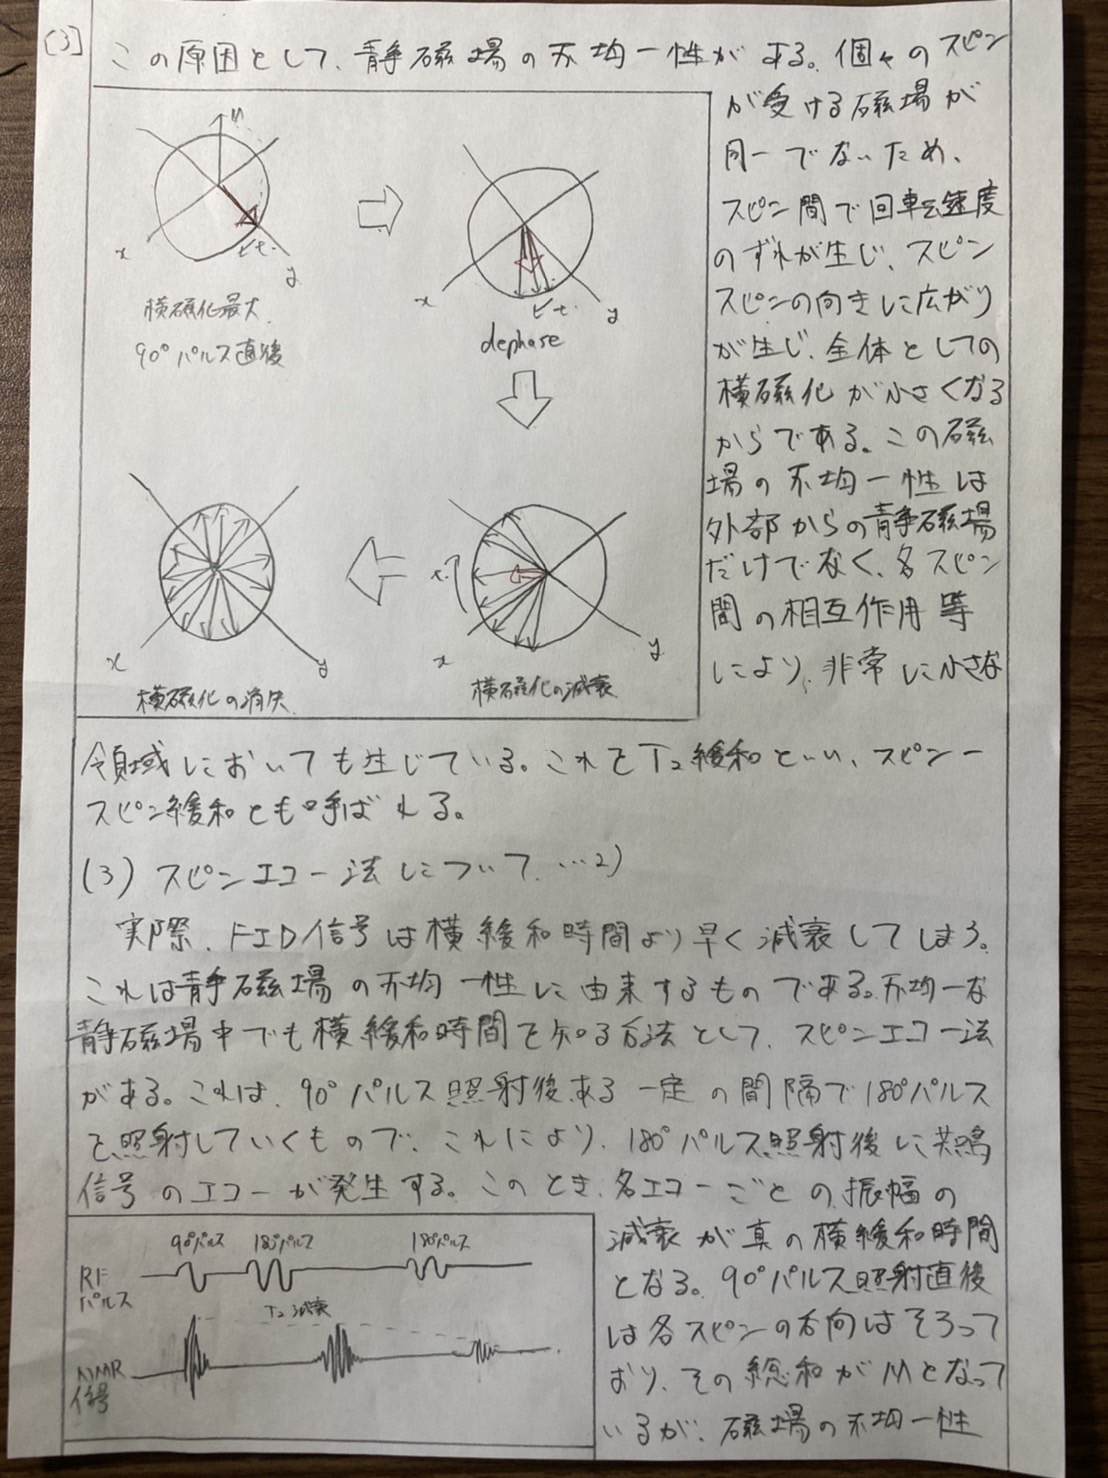 [3]
この原因として、静磁場の不均一性がある。個々のスピン
が受ける磁場が
同一でないため、
スピン間で回転速度
のずれが生じ、スピン
スピンの向きに広がり
が生じ、全体としての
横磁化が小さくなる
からである。この磁
場の不均一性は
外部からの静磁場
だけでなく、各スピン
間の相互作用等
により、非常に小さな
M
x
y
横磁化最大
90°パルス直後
x
y
dephase
x
y
横磁化の減衰
x
y
横磁化の消失
領域においても生じている。これをT₂緩和といい、スピンー
スピン緩和とも呼ばれる。
(3) スピンエコー法について …2)
実際、FID信号は横緩和時間より早く減衰してしまう。
これは静磁場の不均一性に由来するものである。不均一な
静磁場中でも横緩和時間を知る方法として、スピンエコー法
がある。これは、90°パルス照射後、ある一定の間隔で180°パルス
を照射していくもので、これにより、180°パルス照射後に共鳴
信号のエコーが発生する。このとき、各エコーごとの振幅の
減衰が真の横緩和時間
となる。90°パルス照射直後
は各スピンの方向はそろって
おり、その総和がMとなって
いるが、磁場の不均一性
90°パルス 180°パルス 180°パルス
RF
パルス
T₂減衰
NMR
信号